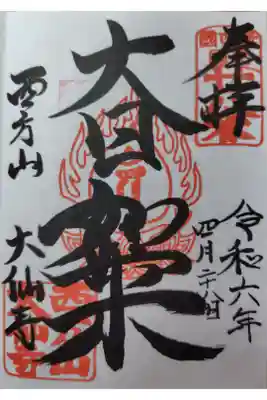 奉拝
令和六年
四月二十八日
大日如来
西方山
大仙寺